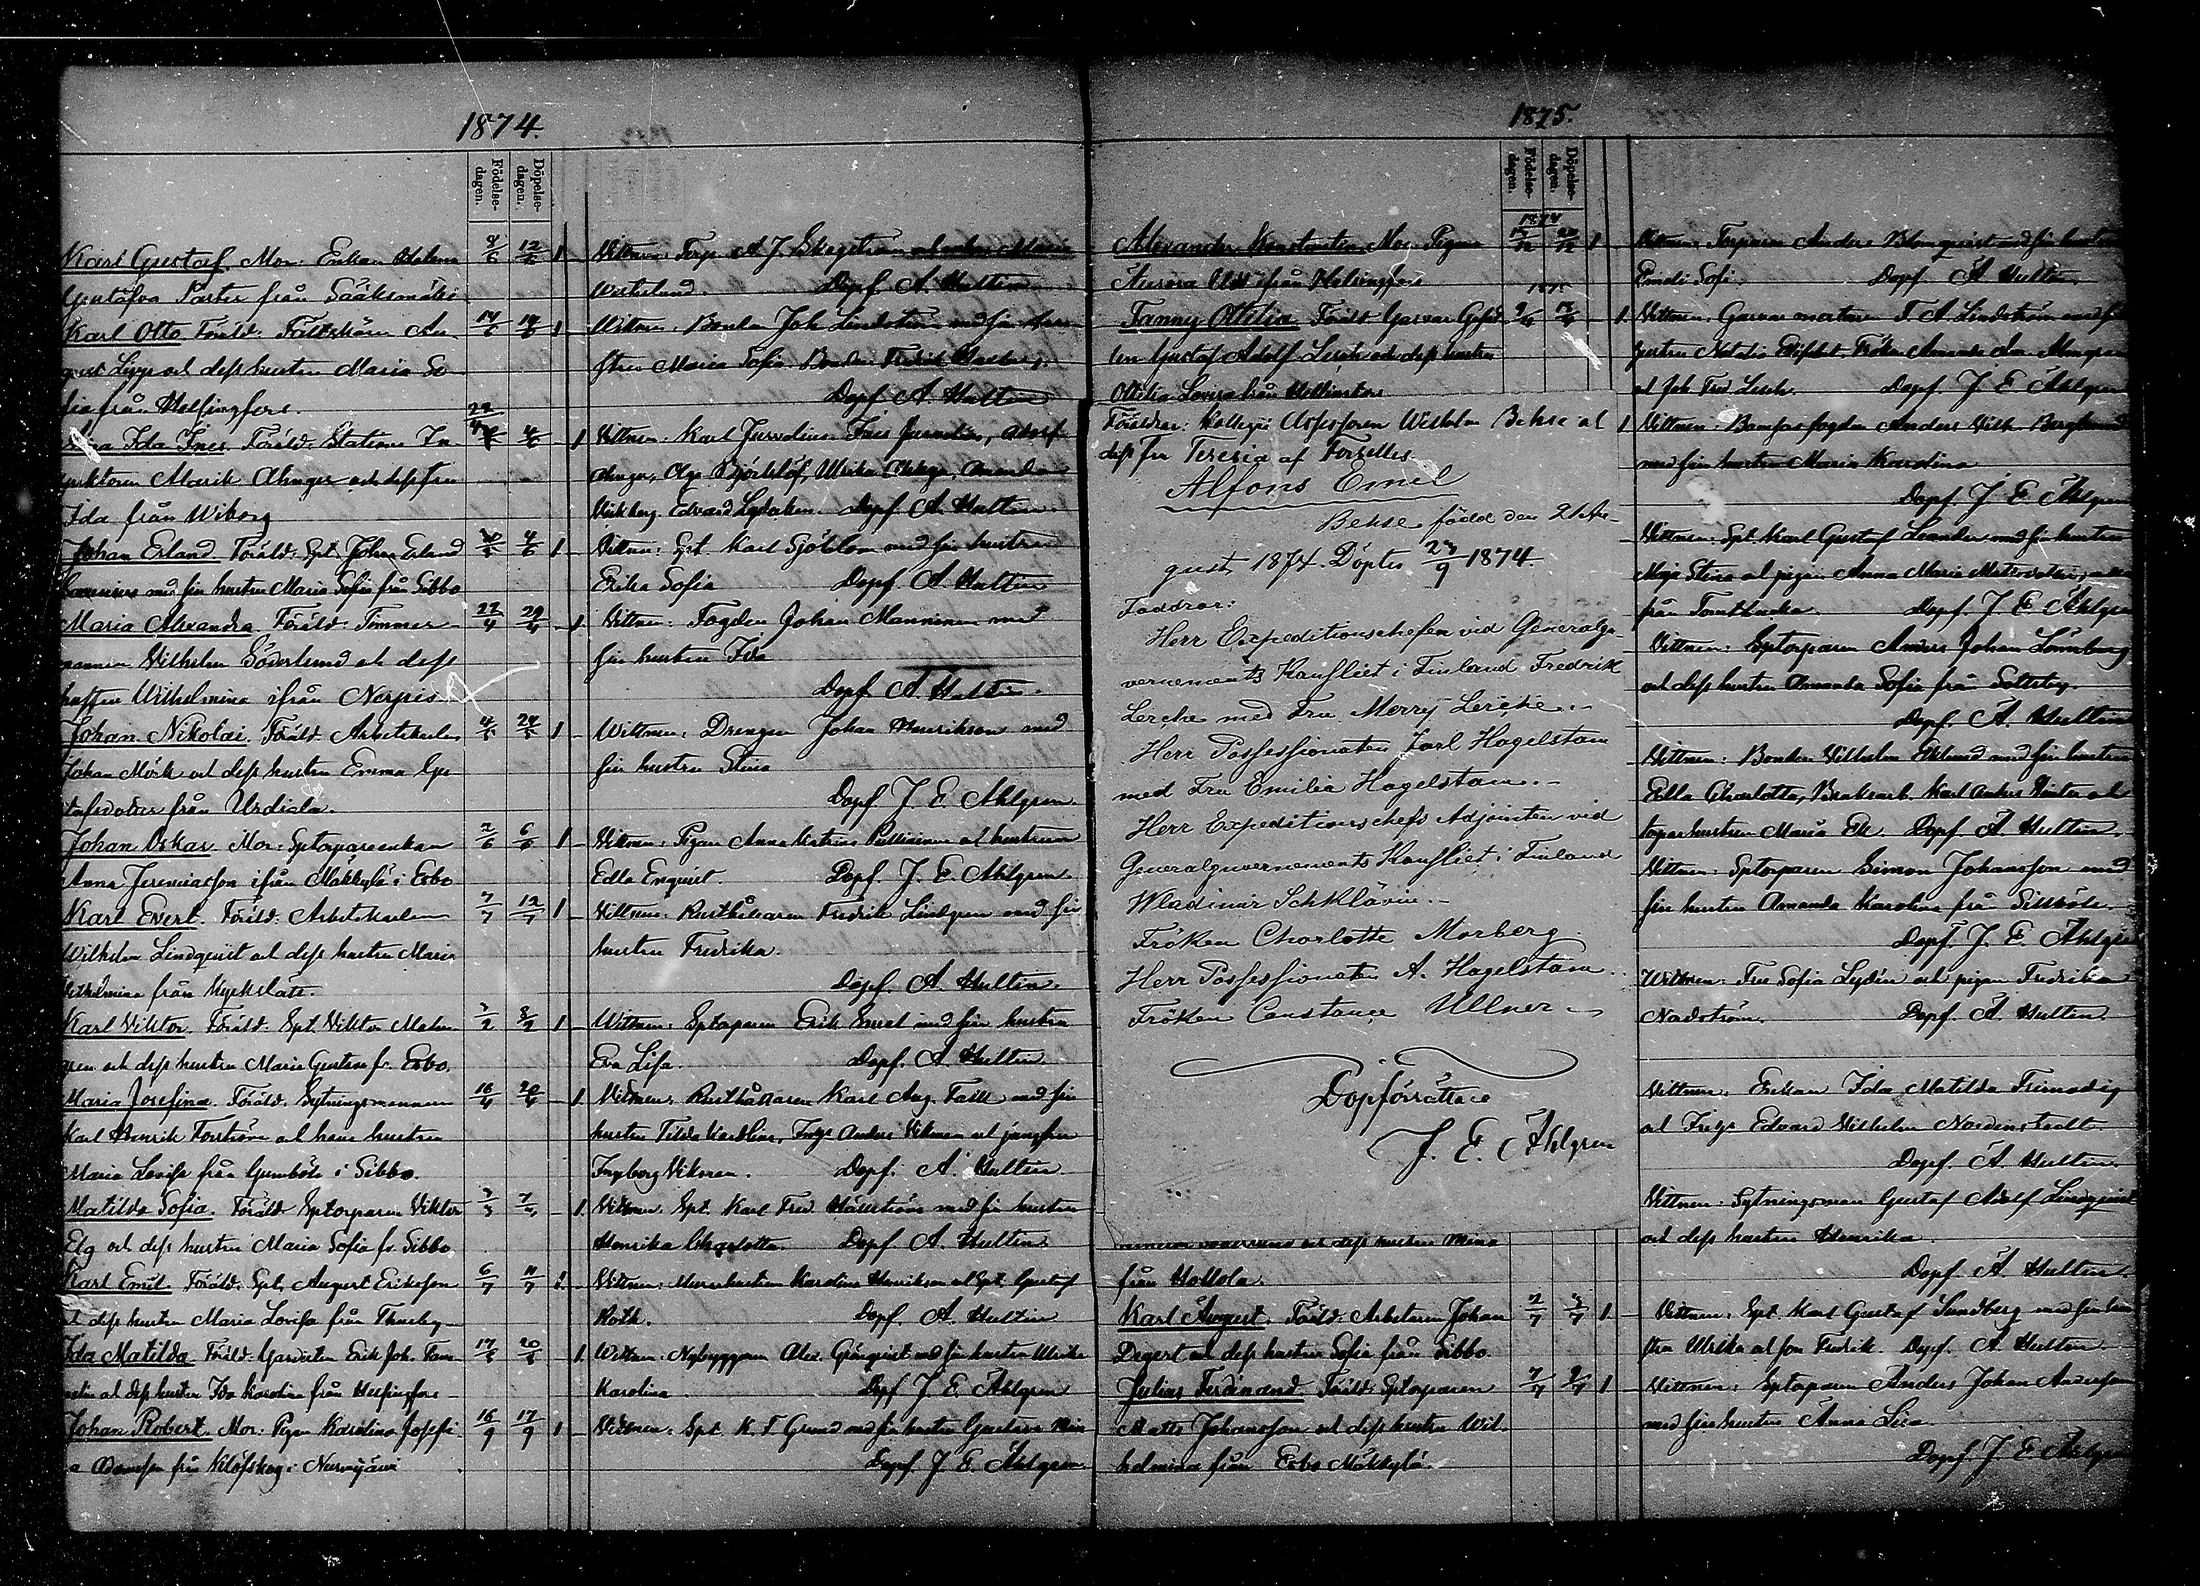 1874.
Födelse-dagen.
Döpelse-dagen.
Karl Gustaf. Mor: Enkan Helena 8/6 12/6 1
Gustafva Parter från Sääksmäki
Karl Otto. Föräld: Fältskären Au- 1
gust och dess hustru Maria So-
fia från Helsingfors.
Ida Ines. Föräld: Stations In- 4/6 1
spektoren och dess fru
Ida från Wiborg
Johan Erland. Föräld: Spt. Johan Erland 4/6 1
med sin hustru Maria Sofia från Sibbo
Maria Alexandra. Föräld: Timmer- 22/4 29/4 1
mannen Wilhelm Söderlund och dess
hustru Wilhelmina ifrån Nerpes.
Johan Nikolai. Föräld: Arbetskarlen 4/5 24/5 1
Johan Mörk och dess hustru Emma Gu-
stafsdotter från Urdiala.
Johan Oskar. Mor: Sptorpareenkan 2/6 6/6 1
Anna Jeremiasson ifrån Mäkkylä i Esbo
Karl Evert. Föräld: Arbetskarlen 7/7 12/7 1
Wilhelm Lindqvist och dess hustru Maria
Wilhelmina från Kyrkslätt.
Karl Viktor. Föräld: Spt. Viktor Malm- 3/2 8/2 1
gren och dess hustru Maria Gustava fr. Esbo.
Maria Josefina. Föräld: Sytningsmannen 16/4 20/4 1
Karl Henrik Forström och hans hustru
Maria Lovisa från Gumböle i Sibbo.
Matilda Sofia. Föräld: Sptorparen Viktor 1
Elg och dess hustru Maria Sofia fr. Sibbo
Karl Emil. Föräld: Spt. August Eriksson 6/7 11/7 1
och dess hustru Maria Lovisa från Thusby
Ida Matilda. Föräld: Gardisten Erik Joh. 17/8 20/8 1
och dess hustru Ida Karolina från Helsingfors
Johan Robert. Mor: Pigan Karolina Josefi- 16/9 17/9 1
na Adamsson från Klöfskog i Nurmijärvi
Vittnen: Torp. A. J. Skogström och enkan Maria
Westerlund. Dopf. A. Hultin
Vittnen: Bonden Joh. Lindström med sin hu-
stru Maria Sofia. Bonden Fredrik
Dopf. A. Hultin
Vittnen: Karl Ines Adolf
Ahnger, Olga Björklöf, Ulrika Ahnger, Amanda
Wikberg. Edvard Dopf. A. Hultin
Vittnen: Spt. Karl Sjöblom med sin hustru
Erika Sofia Dopf. A. Hultin
Vittnen: Fogden Johan Manninen med
sin hustru Ida
Dopf. A. Hultin.
Wittnen: Drengen Johan Henriksson med
sin hustru Stina
Dopf. J. E. Ahlgren.
Vittnen: Pigan Anna Katrina och hustrun
Edla Enqvist. Dopf. J. E. Ahlgren
Vittnen: Rusthållaren Fredrik Lindgren med sin
hustru Fredrika.
Dopf. A. Hultin.
Wittnen: Sptorparen Erik med sin hustru
Eva Lisa. Dopf. A. Hultin.
Vittnen: Rusthållaren Karl Aug. Falk med sin
hustru Tilda Karolina, Andrs Vikman och jungfrun
Ingeborg Vikman. Dopf. A. Hultin.
Vittnen: Spt. Karl Fred. Hällström med sin hustru
Henrika Charlotta. Dopf. A. Hultin
Vittnen: Karolina Henriksson och Spt. Gustaf
Roth. Dopf. A. Hultin
Wittnen: Nybyggaren Alex. med sin hustru Ulrika
Karolina Dopf. J. E. Ahlgren
Vittnen: Spt. K. F. Grund med sin hustru Gustava
Dopf. J. E. Ahlgren.
1875.
Födelse-dagen.
Döpelse-dagen.
1874
Alexander Konstantin. Mor: Pigan 1
Aurora ifrån Helsingfors
1875
Fanny Ottilia. Föräld: Garvar 1
len Gustaf Adolf Lesch och dess hustru
Ottilia Lovisa från
Föräldrar: Kollegii Assessoren Wilhelm Behse och 1
dess fru Teresia af Forselles.
Alfons Emil
Behse född den 21 Au-
gust 1874. Döptes 23/9 1874.
Faddrar:
Herr Expeditionschefen vid Generalgu-
vernements Kansliet i Finland Fredrik
Lerche med Fru Merry Lerche.-
Herr Possessionaten Karl Hagelstam
med Fru Emilia Hagelstam.-
Herr Expeditionschefs Adjointen vid
Generalguvernements Kansliet i Finland
Wladimir Schklävin.-
Fröken Charlotte Morberg.
Herr Possessionaten A. Hagelstam.
Fröken Constance Ullner -
Dopförrättare
J. E. Ahlgren
och dess hustru Mina
från Hollola.
Karl August. Föräld: Arbetaren Johan 2/7 1
Degert och dess hustru Sofia från Sibbo.
Julius Ferdinand. Föräld: Sptorparen 7/7 9/7 1
Matts Johansson och dess hustru Wil-
helmina från Esbo Mäkkylä.
Vittnen: Torparen Anders Blomqvist med sin hustru
Emili Sofi. Dopf. A. Hultin.
Vittnen: Garvar mästaren F. A. Lindström med
hustru Natalia Fröken Amanda
och Joh. Fred Lesch. Dopf. J. E. Ahlgren
Vittnen: Anders Vilh. Berglund
med sin hustru Maria Karolina
Dopf. J. E. Ahlgren
Vittnen: Spt. Karl Gustaf Leander med sin hustru
Maja Stina och pigan Anna Maria
från Tomtbacka. Dopf. J. E. Ahlgren
Vittnen: Sptorparen Anders Johan Lönnberg
och dess hustru Amanda Sofia från Sottsby.
Dopf. A. Hultin
Vittnen: Bonden Wilhelm Eklund med sin hustru
Edla Charlotta, Karl Anders och
torparhustrun Maria Ek Dopf. A. Hultin.
Vittnen: Sptorparen Simon Johansson med
sin hustru Amanda Karolina från Sillböle.
Dopf. J. E. Ahlgren
Wittnen: Fru Sofia Lydén och pigan Fredrika
Nordström. Dopf. A. Hultin.
Vittnen: Enkan Ida Matilda
och Edvard Wilhelm Nordenstedt.
Dopf. A. Hultin.
Vittnen: Sytningsman Gustaf Adolf Lindqvist
och dess hustru Henrika.
Dopf. A. Hultin.
Vittnen: Spt. Karl Gustaf Sundberg med sin hu-
stru Ulrika och son Fredrik. Dopf. A. Hultin.
Vittnen: Sptorparen Anders Johan Andersson
med sin hustru Anna Lisa.
Dopf. J. E. Ahlgren